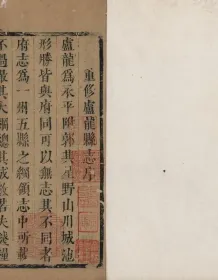 重修盧龍縣志序
盧龍為永平附郭其星野山川城池
形勝皆與府同可以無志其不同者
府志為一州五縣之總領志中所載
不過嚴其大綱總其成數若夫錢糧